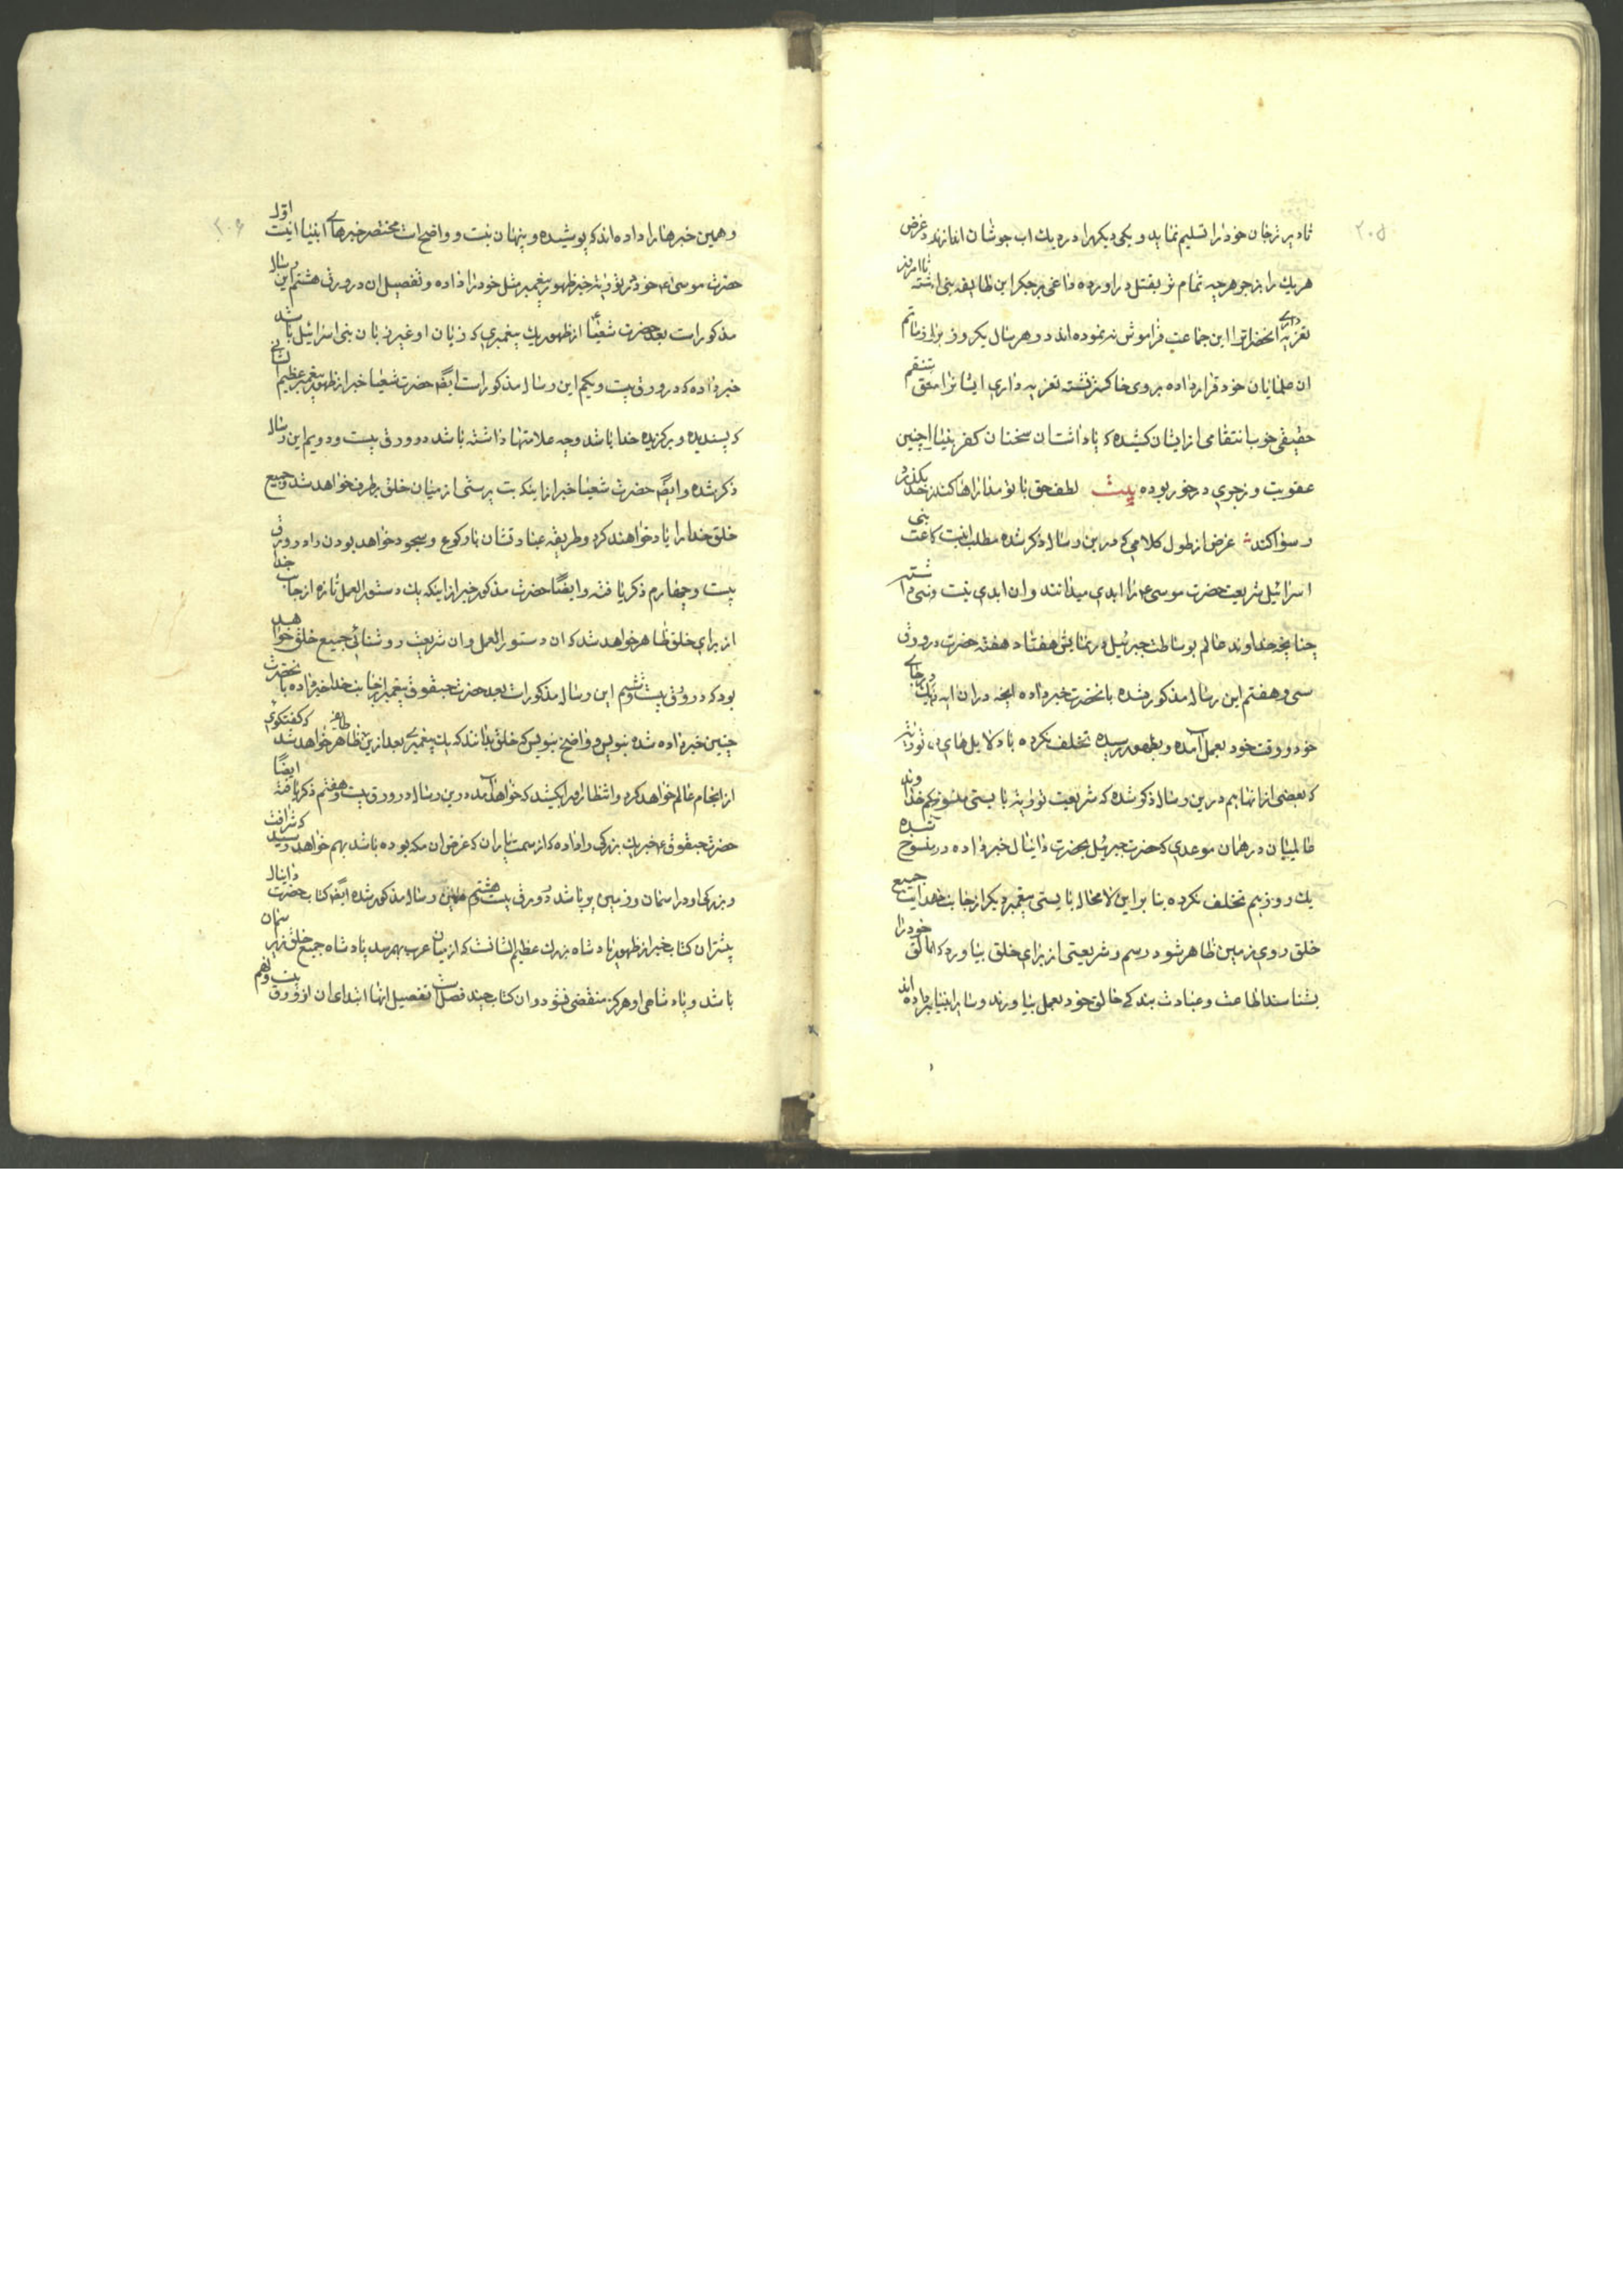 ۲۰۵
تا دیر تر جان خود را تسلیم نماید و یکی دیگر را در دیك اب جوشان اندازند و غرض
هریك را بزجر هرچه تمام تر بقتل دراورده داغی بر جکر این طایفه بنی گذاشته تا امروز
تعزیه داری انحضرات را این جماعت فراموش ننموده اند و هر سال یکروز برای ماتم
ان خود قرار داده بروی خاکستر نشسته تعزیه داری ایشان را منتقم
حقیقی خوب انتقامی از ایشان کشیده که پاداشت ان سخنان کفر بنیاد چنین
عقوبت و زجری در خور بوده بیت لطف حق با تو مداراها کند چونکه از حد بگذرد
رسوا کند غرض از طول کلامی که درین رساله ذکر شده مطلب اینست که امت بنی
اسرائیل شریعت حضرت موسی ع را ابدی میدانند و ان ابدی نیست و نسخ داشته
چنانچه خداوند عالم بوساطت جبرئیل در نمایش هفتاد هفته حضرت در ورق
سی و هفتم این رساله مذکور شده بانحضرت خبر داده انچه در ان ایه در جای
خود و وقت خود بعمل آمده و بظهور رسیده تخلف نکرده با دلایل های توراتی
که بعضی از انها هم درین رساله ذکر شده که شریعت توراته بایستی بحکم خداوند
عالمیان در همان موعدی که حضرت جبرئیل بحضرت دانیال خبر داده و منسوخ شده
یك روز هم تخلف نکرده بنا بر این لامحاله بایستی پیغمبر دیکر از جانب خدا جمیع
خلق روی زمین ظاهر شود و رسم و شریعتی از برای خلق بیاورد که خالق خود را
بشناسند اطاعت و عبادت بندکی خالق خود بعمل بیاورند و سایر انبیا خبر داده اند
۲۰۶
و همین خبرها را داده اند که پوشیده و پنهان نیست و واضح است مختصر خبرهای انبیا اینست اول
حضرت موسی ع خود در توراته خبر ظهور پیغمبر مثل خود را داده و تفصیل ان در ورق هشتم این رساله
مذکور است بعد حضرت شعیا از ظهور یك پیغمبری که زبان او غیر زبان بنی اسرائیل باشد
خبر داده که در ورق بیست و یکم این رساله مذکور است ایضا حضرت شعیا خبر از ظهور پیغمبر عظیم الشان
که پسندیده و برکزیده خدا باشد و چه علامتها داشته باشد در ورق بیست و دویم این رساله
ذکر شده و ایضا حضرت شعیا خبر از اینکه بت پرستی از میان خلق برطرف خواهد شد و جمیع
خلق خدا را یاد خواهند کرد و طریقه عبادتشان با رکوع و سجود خواهد بود در ورق
بیست و چهارم ذکر یافته و ایضاً حضرت مذکور خبر از اینکه یك دستور العمل تازه از جانب خدا
از برای خلق ظاهر خواهد شد که ان دستور العمل و ان شریعت روشنائی جمیع خلق خواهد
بود که در ورق بیست و ششم این رساله مذکور است بعد حضرت حبقوق پیغمبر از جانب خدا خبر داده بانحضرت
چنین خبر داده شده بنویس و واضح بنویس که خلق بدانند که یك پیغمبری بعد ازین ظاهر خواهد شد که کفتکوی
از انجام عالم خواهد کرد و انتظار او را بکشید که خواهد آمد درین رساله در ورق بیست و هفتم ذکر یافته ایضاً
حضرت حبقوق ع خبر یك بزرکی را داده که از سمت پاران که غرض ان مکه بوده باشد بهم خواهد رسید که شرافت
و بزرکی او در اسمان و زمین پر باشد در ورق بیست و هشتم همین رساله مذکور شده ایضا کتاب حضرت دانیال
بیشتر ان کتاب خبر از ظهور پادشاه بزرك عظیم الشانست که از میان عرب بهم رسد پادشاه جمیع خلق زمین
باشد و پادشاهی او هرکز منقضی نشود و ان کتاب چند فصل است تفصیل انها ابتدای ان از ورق بیست و نهم